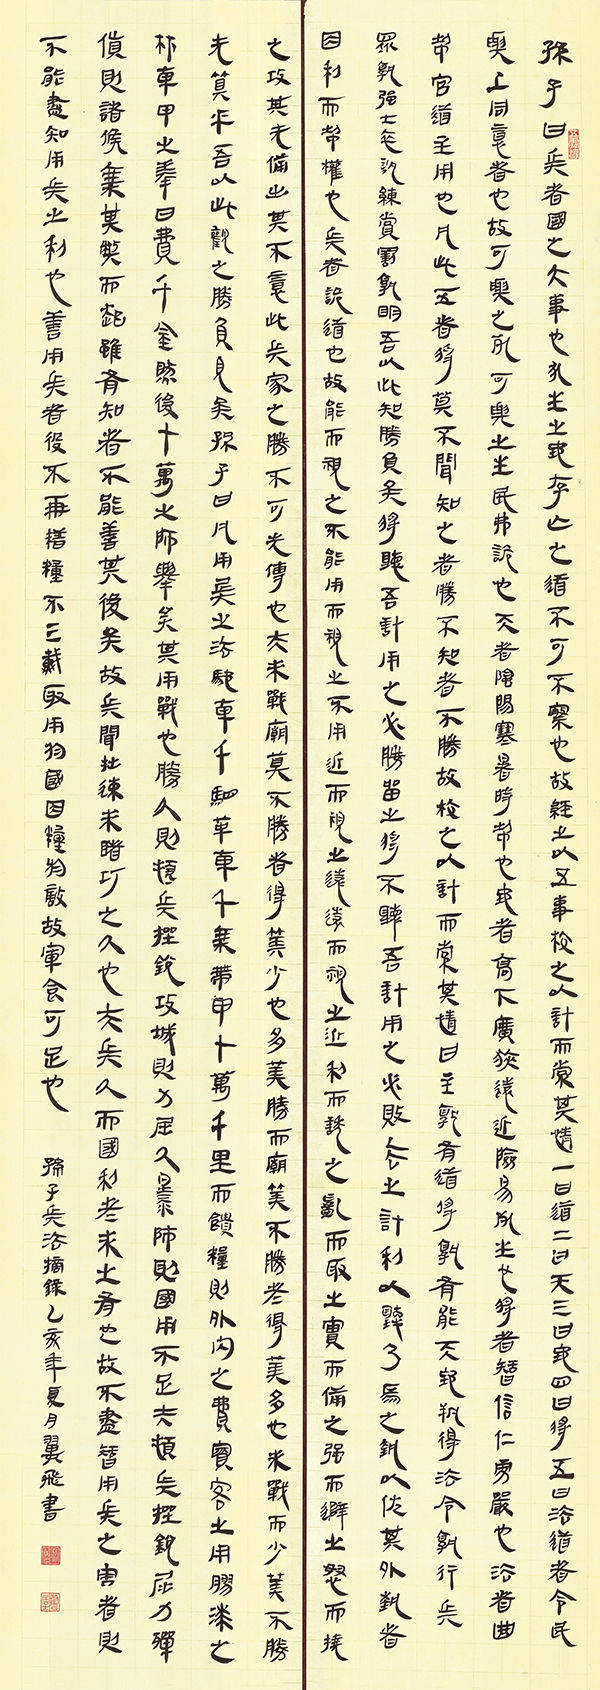 孫子曰兵者國之大事也死生之地存亡之道不可不察也故經之以五事校之以計而索其情一曰道二曰天三曰地四曰將五曰法道者令民
與上同意者也故可與之死可與之生民弗詭也天者陰陽寒暑時制也地者高下廣狹遠近險易死生也將者智信仁勇嚴也法者曲
制官道主用也凡此五者將莫不聞知之者勝不知者不勝故校之以計而索其情曰主孰有道將孰有能天地孰得法令孰行兵
眾孰強士卒孰練賞罰孰明吾以此知勝負矣將聽吾計用之必勝留之將不聽吾計用之必敗去之計利以聽乃為之埶以佐其外埶者
因利而制權也兵者詭道也故能而視之不能用而視之不用近而視之遠遠而視之近利而誘之亂而取之實而備之强而避之怒而撓
之攻其无備出其不意此兵家之勝不可先傳也夫未戰廟筭不勝者得筭少也多筭勝而廟筭不勝者得筭多也未戰而少筭不勝
无筭乎吾以此觀之勝負見矣孫子曰凡用兵之法馳車千駟革車千乘帶甲十萬千里而饋糧則外內之費賓客之用膠漆之
材車甲之奉日費千金然後十萬之師舉矣其用戰也勝久則頓兵挫銳攻城則力屈久暴師則國用不足夫頓兵挫銳屈力殫
貨則諸侯乘其弊而起雖有知者不能善其後矣故兵聞拙速未睹巧之久也夫兵久而國利者未之有也故不盡智用兵之害者則
不能盡知用兵之利也善用兵者役不再籍糧不三載取用於國因糧於敵故軍食可足也 孫子兵法摘錄乙亥年夏月翼飛書